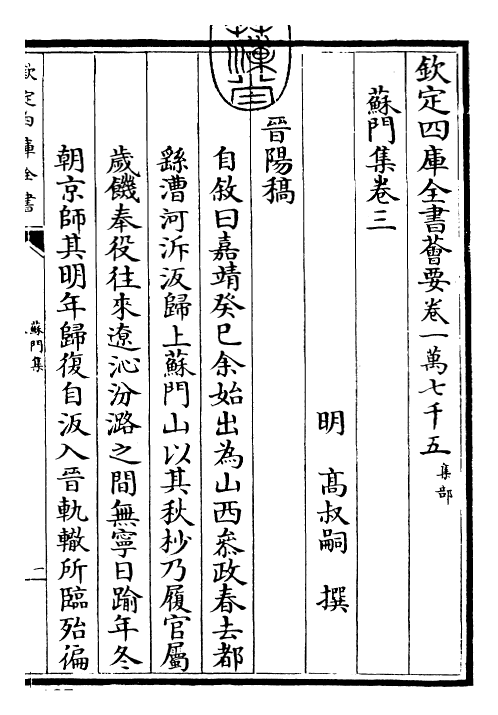 欽定四庫全書薈要卷一萬七千五 集部
蘇門集卷三
明 高叔嗣 撰
晉陽稿
自敘曰嘉靖癸巳余始出為山西叅政春去都
繇漕河泝汳歸上蘇門山以其秋杪乃履官屬
歲饑奉役往來遼沁汾潞之間無寧日踰年冬
朝京師其明年歸復自汳入晉軌轍所臨殆徧
欽定四庫全書
蘇門集